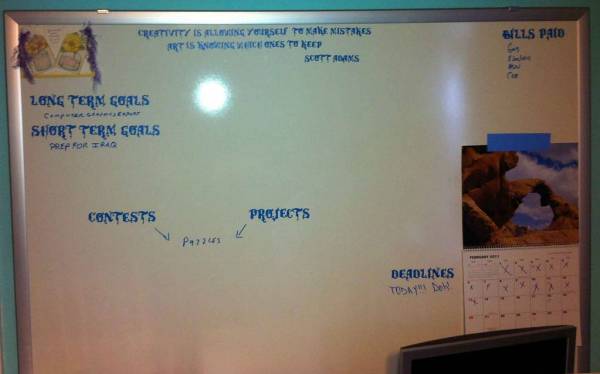 CREATIVITY IS ALLOWING YOURSELF TO MAKE MISTAKES
ART IS KNOWING WHICH ONES TO KEEP
SCOTT ADAMS
BILLS PAID
Gas
Cox
LONG TERM GOALS
COMPUTER GRAPHICS EXPERT
SHORT TERM GOALS
PREP FOR IRAQ
CONTESTS
PROJECTS
PUZZLES
DEADLINES
TODAY!!! Doh!
FEBRUARY 2011